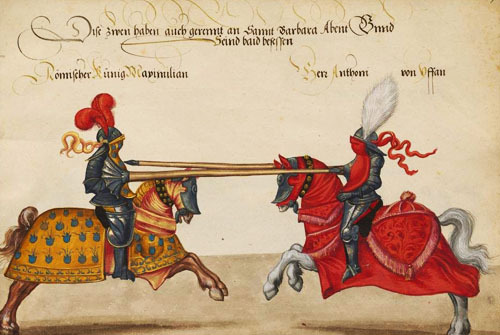 Dise zwen haben auch gerennt an Sannt Barbara Abent Vnnd
Seind baid besessen
Römischer Künig Maximilian Herr Anthoni von Yffan